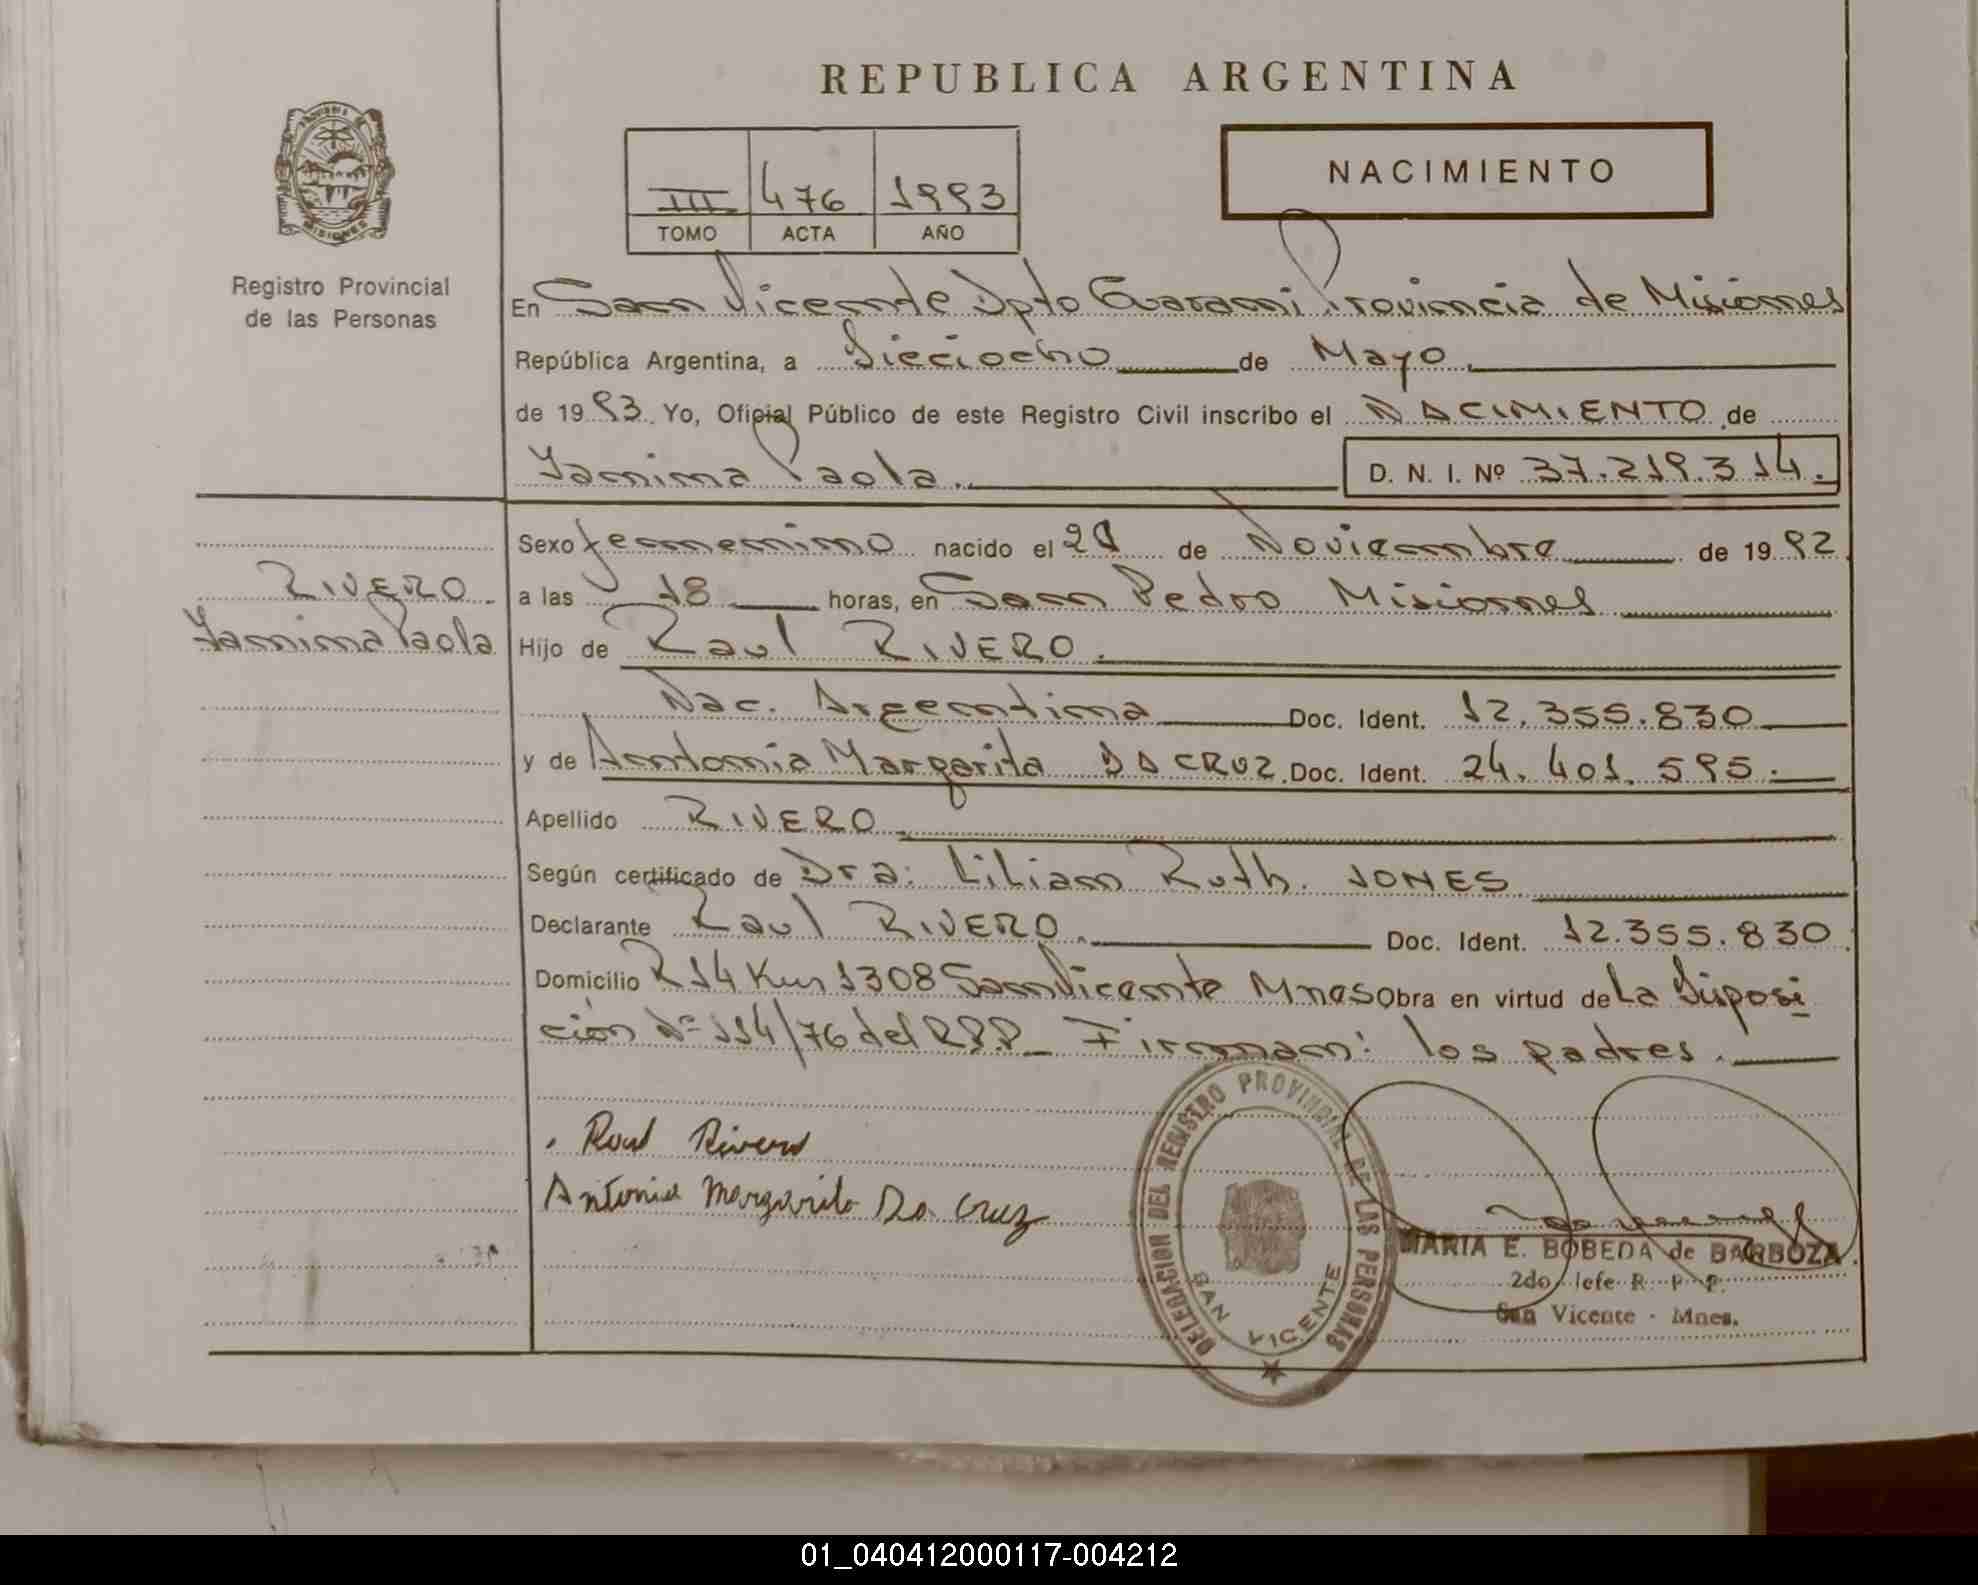 REPUBLICA ARGENTINA
NACIMIENTO
III 476 1993
TOMO ACTA AÑO
MISIONES
Registro Provincial
de las Personas
En San Vicente Dpto Guarani Provincia de Misiones
República Argentina, a Dieciocho de Mayo
de 1993. Yo, Oficial Público de este Registro Civil inscribo el NACIMIENTO de
Yanina Paola. D. N. I. Nº 37.219.314.
Sexo femenino nacido el de Noviembre de 1992
RIVERO
Yanina Paola
a las 18 horas, en San Pedro Misiones
Hijo de Raul RIVERO.
Nac. Argentina Doc. Ident. 12.355.830
y de Antonia Margarita DA CRUZ. Doc. Ident. 24.401.595.
Apellido RIVERO
Según certificado de Dra: Liliam Ruth. JONES
Declarante Raul RIVERO. Doc. Ident. 12.355.830
Domicilio R14 Km 1308 San Vicente Mnes Obra en virtud de La Disposi
ción Nº 114/76 del R.P.P. Firman: los padres.
Raul Rivero
Antonia Margarita Da Cruz
DELEGACION DEL REGISTRO PROVINCIAL DE LAS PERSONAS
SAN VICENTE
MARIA E. BOBEDA de BARBOZA
2do. Jefe R. P. P.
San Vicente - Mnes.
01_040412000117-004212